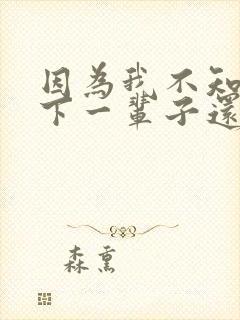 因為我不知
下一輩子還
森熏